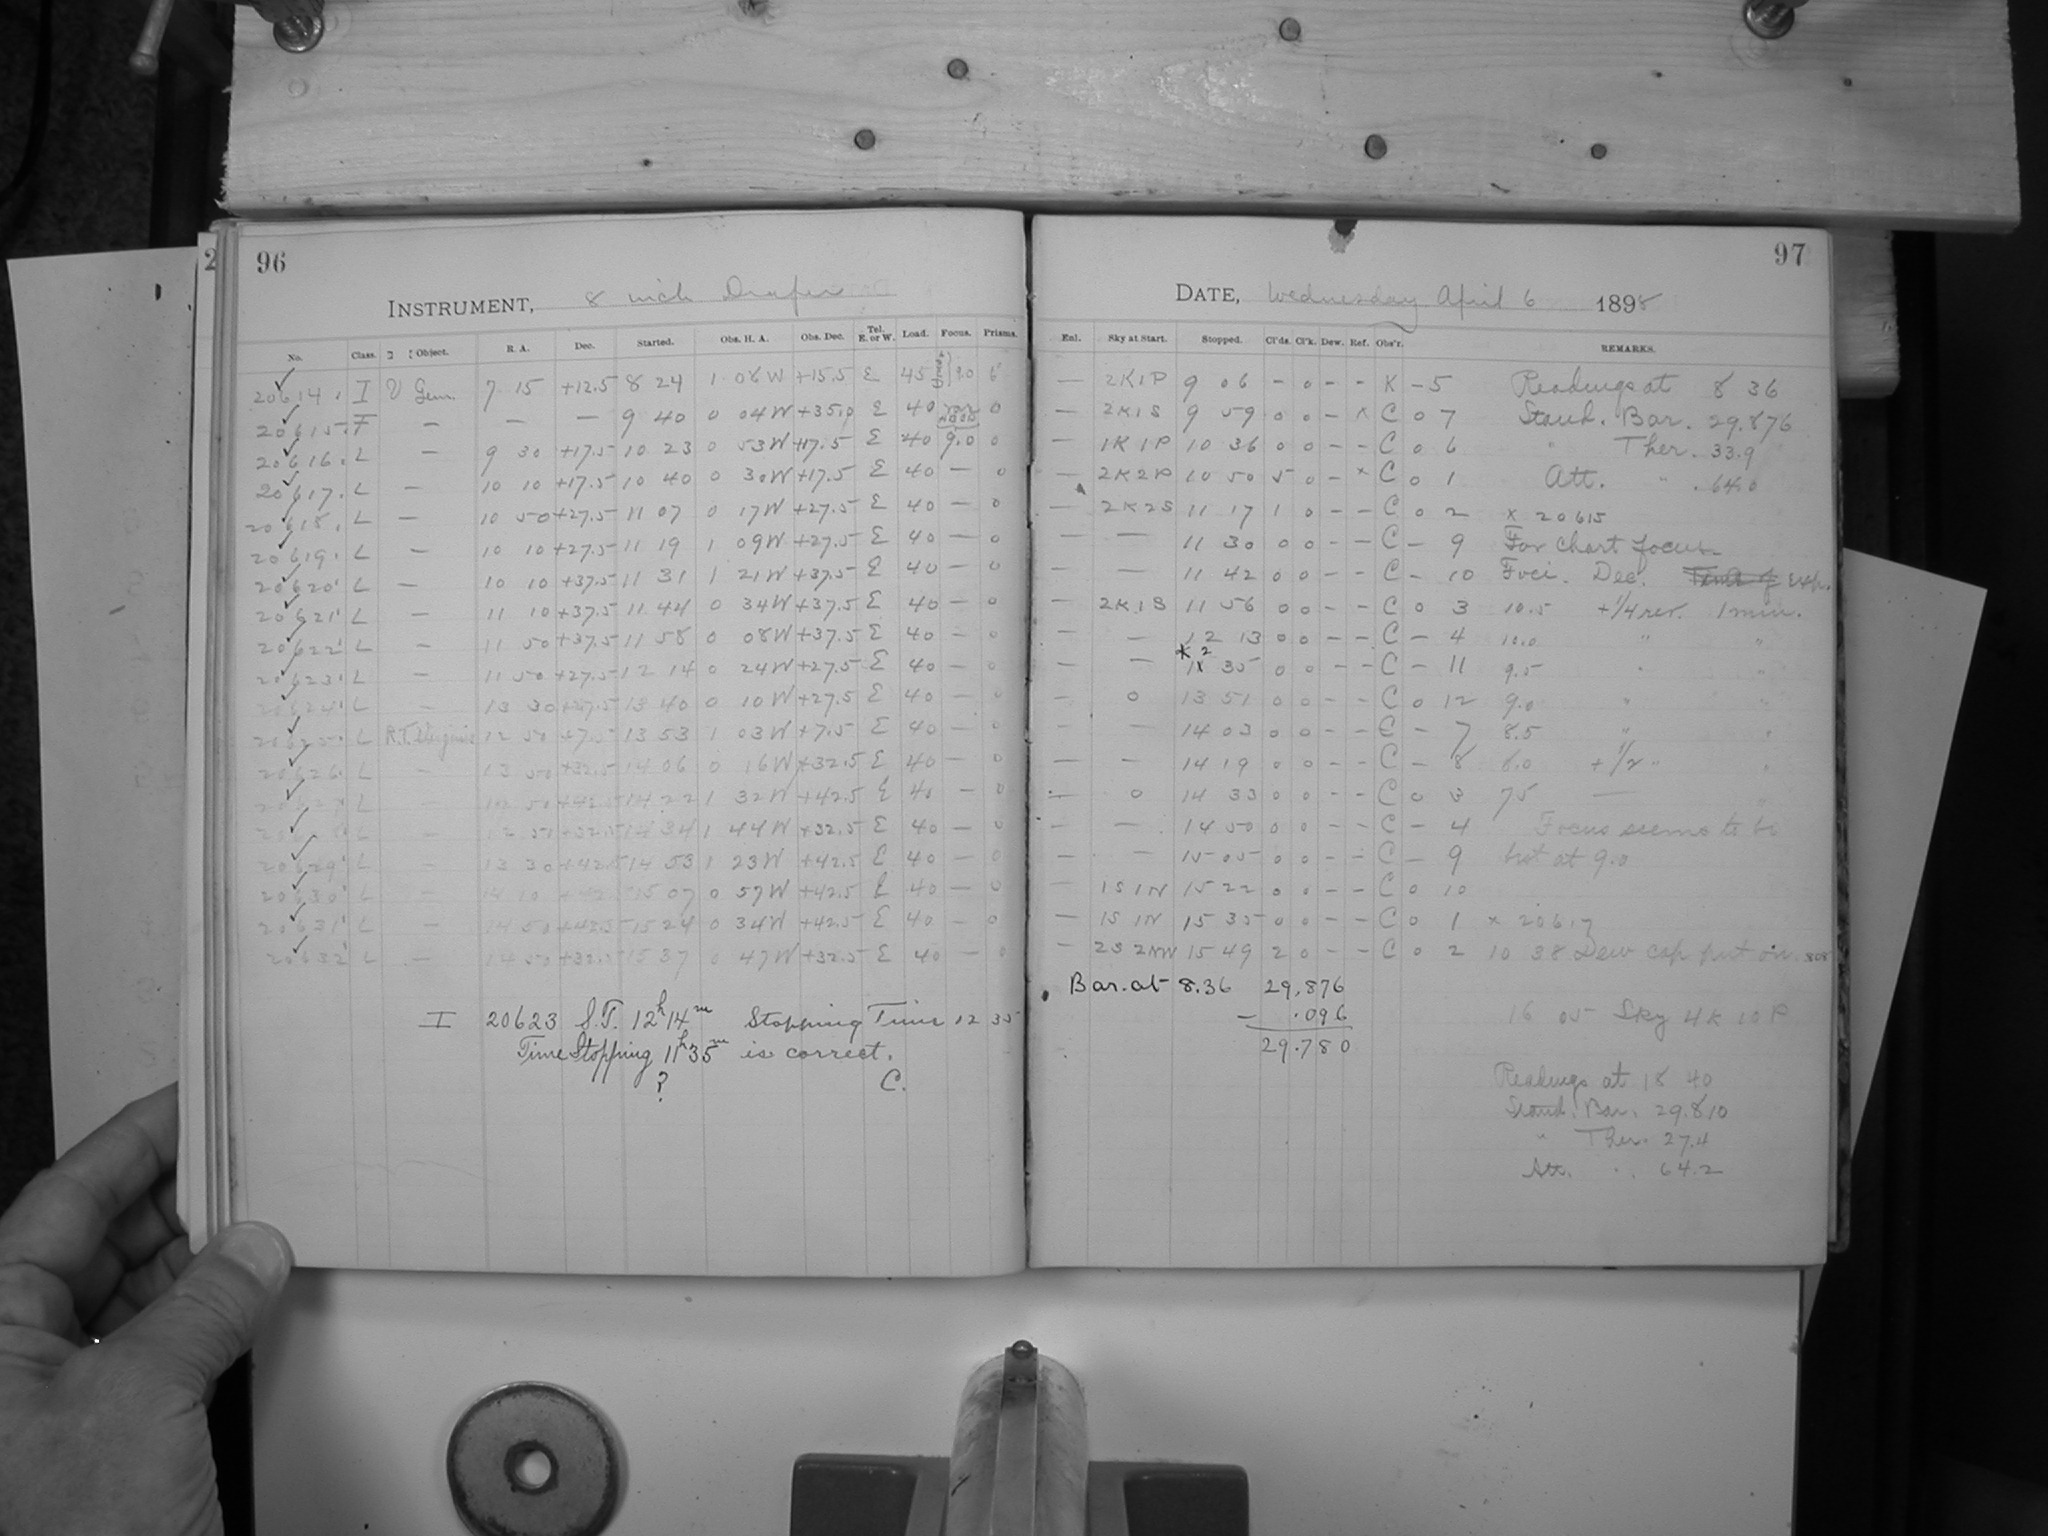 2
96
INSTRUMENT, 8 inch Draper
No. Class. Object. R. A. Dec. Started. Obs. H. A. Obs. Dec. Tel. E. or W. Load. Focus. Prisms.
20614 I U Gem. 7 15 +12.5 8 24 1 08 W +15.5 E 45 9.0
20615 F — — — 9 40 0 04 W +35.0 E 40 0
20616. L — 9 30 +17.5 10 23 0 53 W +17.5 E 40 9.0 0
20617. L — 10 10 +17.5 10 40 0 30 W +17.5 E 40 — 0
20618. L — 10 50 +27.5 11 07 0 17 W +27.5 E 40 — 0
20619. L — 10 10 +27.5 11 19 1 09 W +27.5 E 40 — 0
20620 L — 10 10 +37.5 11 31 1 21 W +37.5 E 40 — 0
20621 L — 11 10 +37.5 11 44 0 34 W +37.5 E 40 — 0
20622 L — 11 50 +37.5 11 58 0 08 W +37.5 E 40 — 0
20623 L — 11 50 +27.5 12 14 0 24 W +27.5 E 40 — 0
20624 L — 13 30 +27.5 13 40 0 10 W +27.5 E 40 — 0
20625 L R.T. Virginis 12 50 +7.5 13 53 1 03 W +7.5 E 40 — 0
20626 L — 13 50 +32.5 14 06 0 16 W +32.5 E 40 — 0
L — 12 50 +42.5 14 22 1 32 W +42.5 E 40 — 0
L — 12 50 +32.5 14 34 1 44 W +32.5 E 40 — 0
20629 L — 13 30 +42.5 14 53 1 23 W +42.5 E 40 — 0
20630 L — 14 10 +42.5 15 07 0 57 W +42.5 E 40 — 0
20631 L — 14 50 +42.5 15 24 0 34 W +42.5 E 40 — 0
20632 L — 14 50 +32.5 15 37 0 47 W +32.5 E 40 — 0
I 20623 S.T. 12h14m Stopping Time 12 35
Time Stopping 11h35m is correct.
? C.
97
DATE, Wednesday April 6 1898
Enl. Sky at Start. Stopped. Cl'ds. Cl'k. Dew. Ref. Obs'r. REMARKS.
— 2K1P 9 06 - 0 - - K - 5 Readings at 8 36
— 2K1S 9 59 0 0 - x C 0 7 Stand. Bar. 29.876
— 1K1P 10 36 0 0 - - C 0 6 " Ther. 33.9
— 2K2P 10 50 5 0 - x C 0 1 Att. " 64.0
— 2K2S 11 17 1 0 - - C 0 2 x 20615
— — 11 30 0 0 - - C - 9 For chart focus
— — 11 42 0 0 - - C - 10 Foci. Dec. Exp.
— 2K1S 11 56 0 0 - - C 0 3 10.5 +1/4 rev. 1 min.
— — 12 13 0 0 - - C - 4 10.0 " "
x 2
— — 1x 35 0 0 - - C - 11 9.5 " "
— 0 13 51 0 0 - - C 0 12 9.0 " "
— — 14 03 0 0 - - C - 7 8.5 " "
— — 14 19 0 0 - - C - 8 8.0 +1/2 " "
— 0 14 33 0 0 - - C 0 3 75 — "
— — 14 50 0 0 - - C - 4 Focus seems to be
— — 15 05 0 0 - - C - 9 best at 9.0
— 1S 1N 15 22 0 0 - - C 0 10
— 1S 1N 15 35 0 0 - - C 0 1 x 20617
— 2S 2NW 15 49 2 0 - - C 0 2 10 38 Dew cap put on.
Bar. at 8.36 29.876
- .096
29.780
16 05 Sky 4K 10P
Readings at 18 40
Stand. Bar. 29.810
" Ther. 27.4
Att. " 64.2